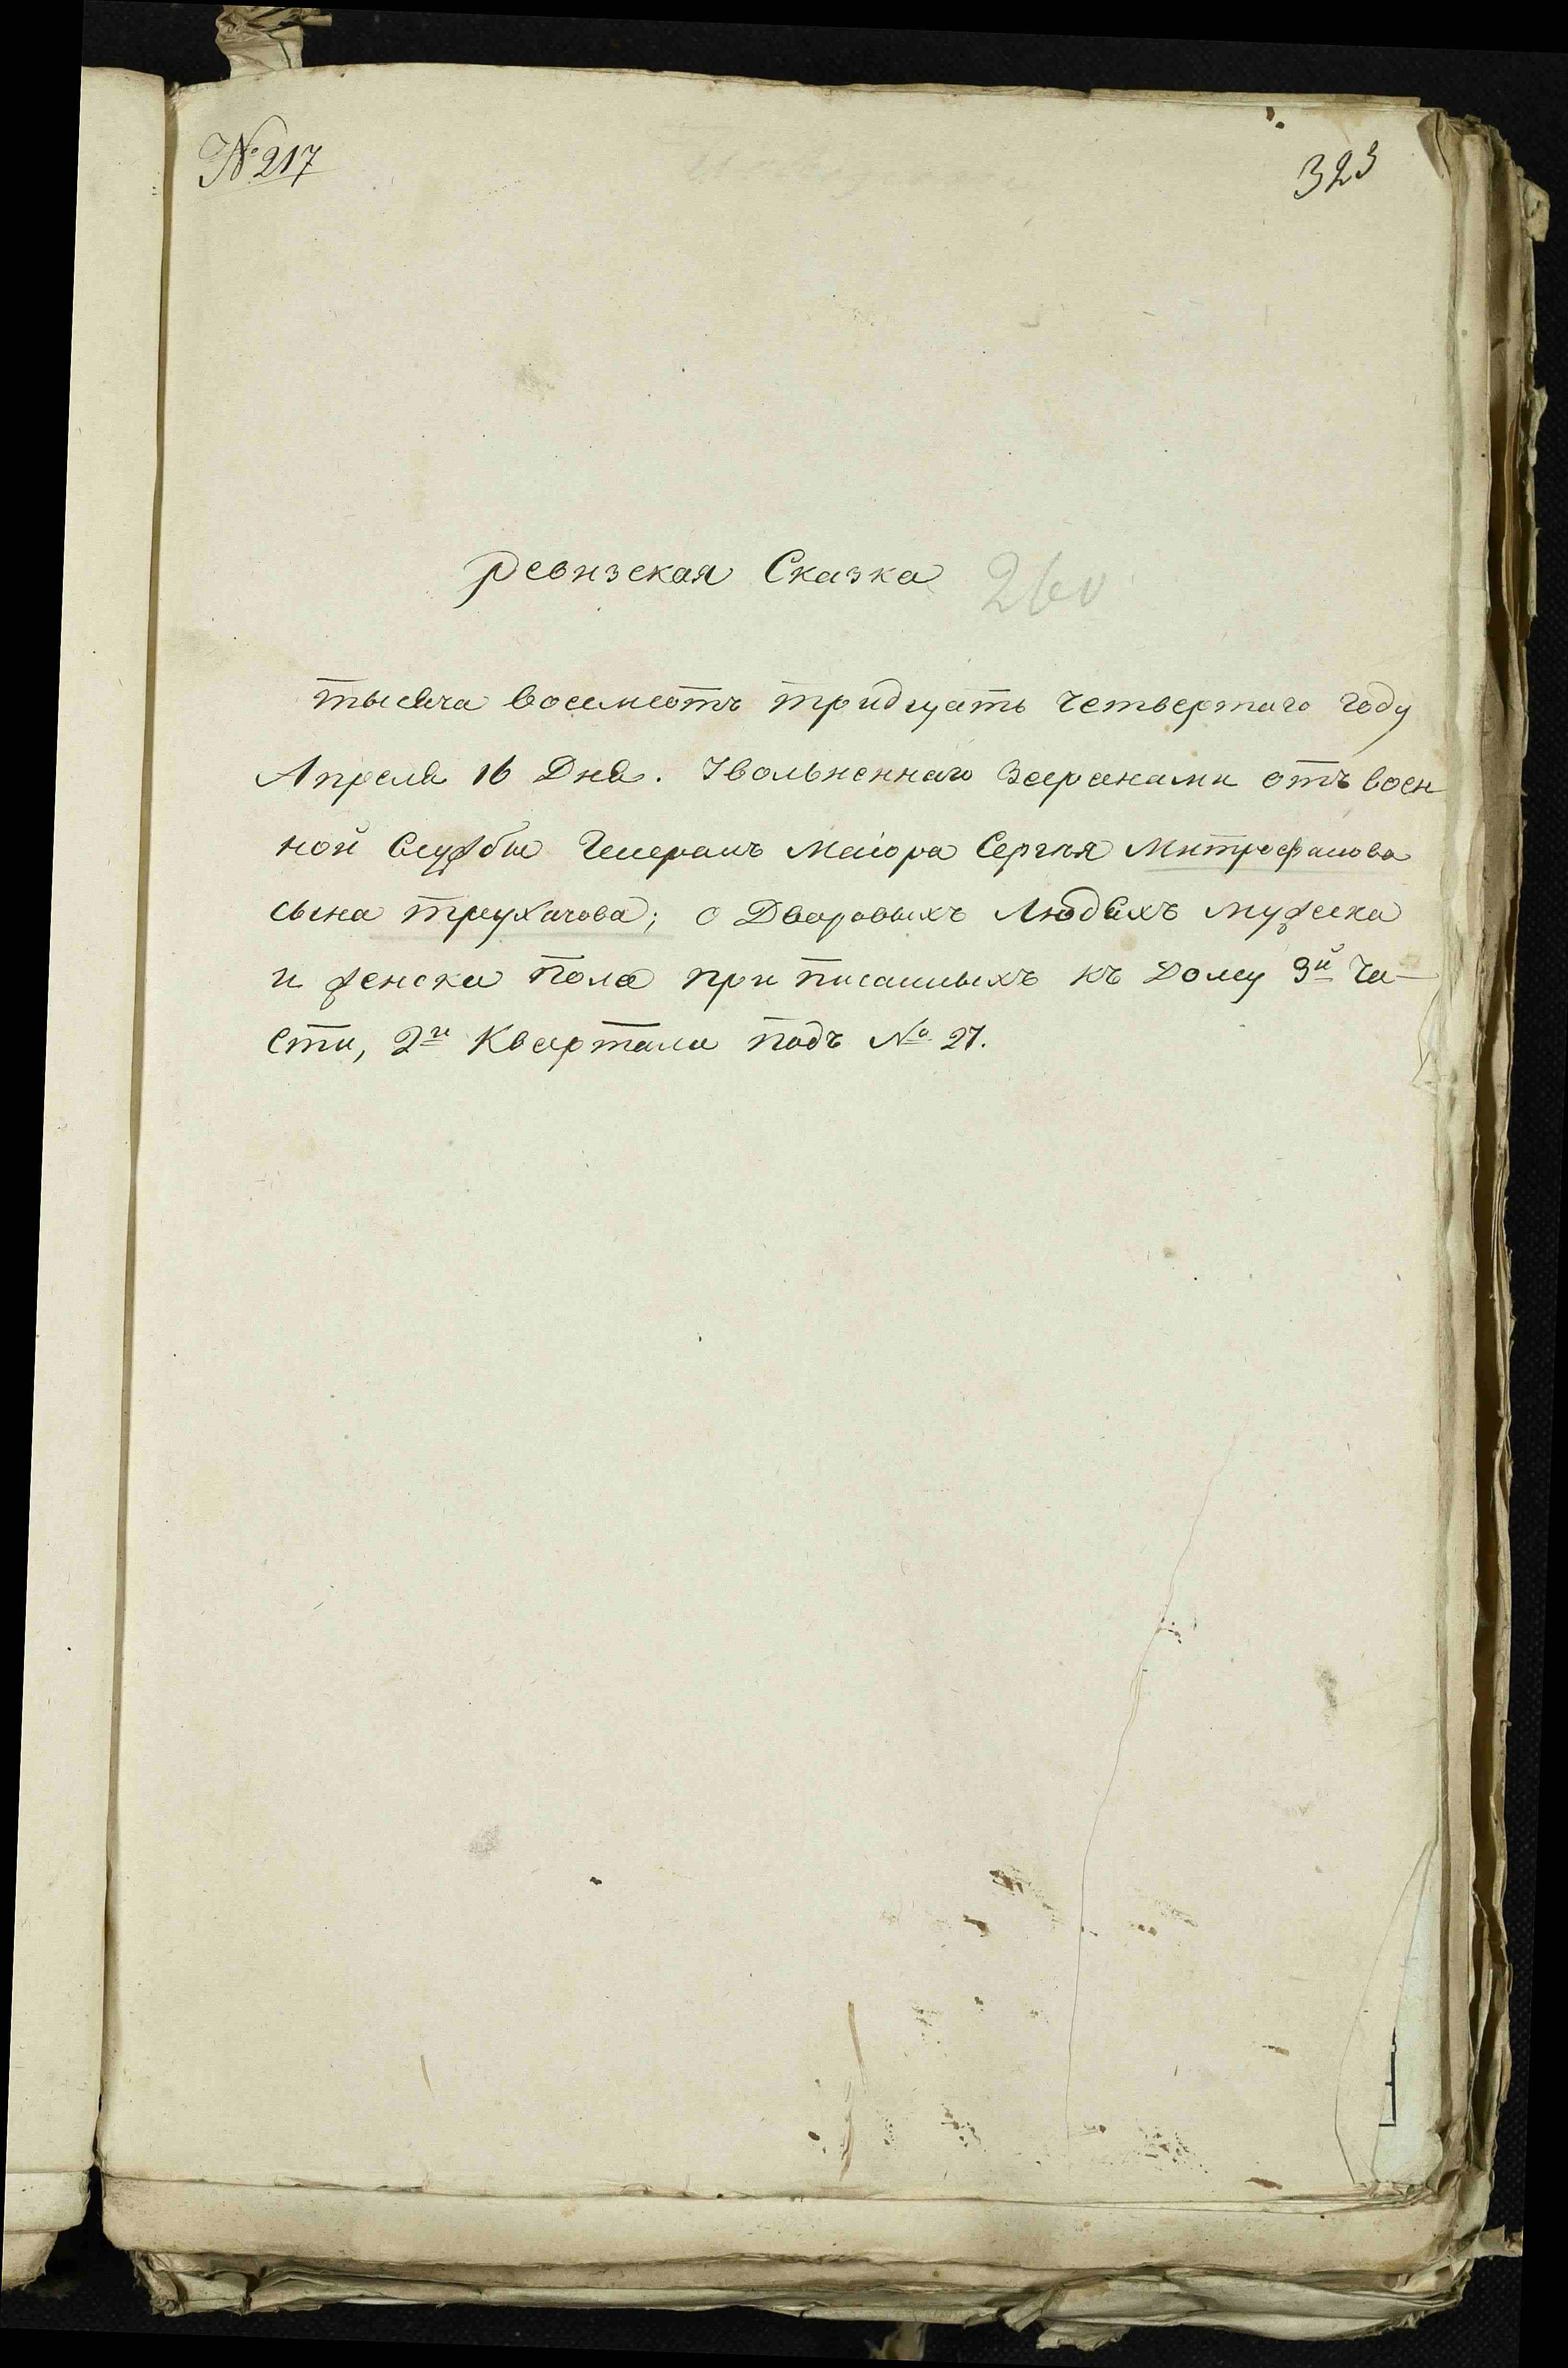 № 217
323
Ревизская Сказка 260
тысяча восемсотъ тридцать четвертаго году
Апреля 16 Дня. Увольненнаго Заранами отъ воен
ной Службы Генералъ Маiора Сергѣя Митрофанова
сына треухачова; о Дворовыхъ Людяхъ мужска
и женска пола при писанныхъ къ Дому 3й Ча-
сти, 2го Квартала подъ № 27.